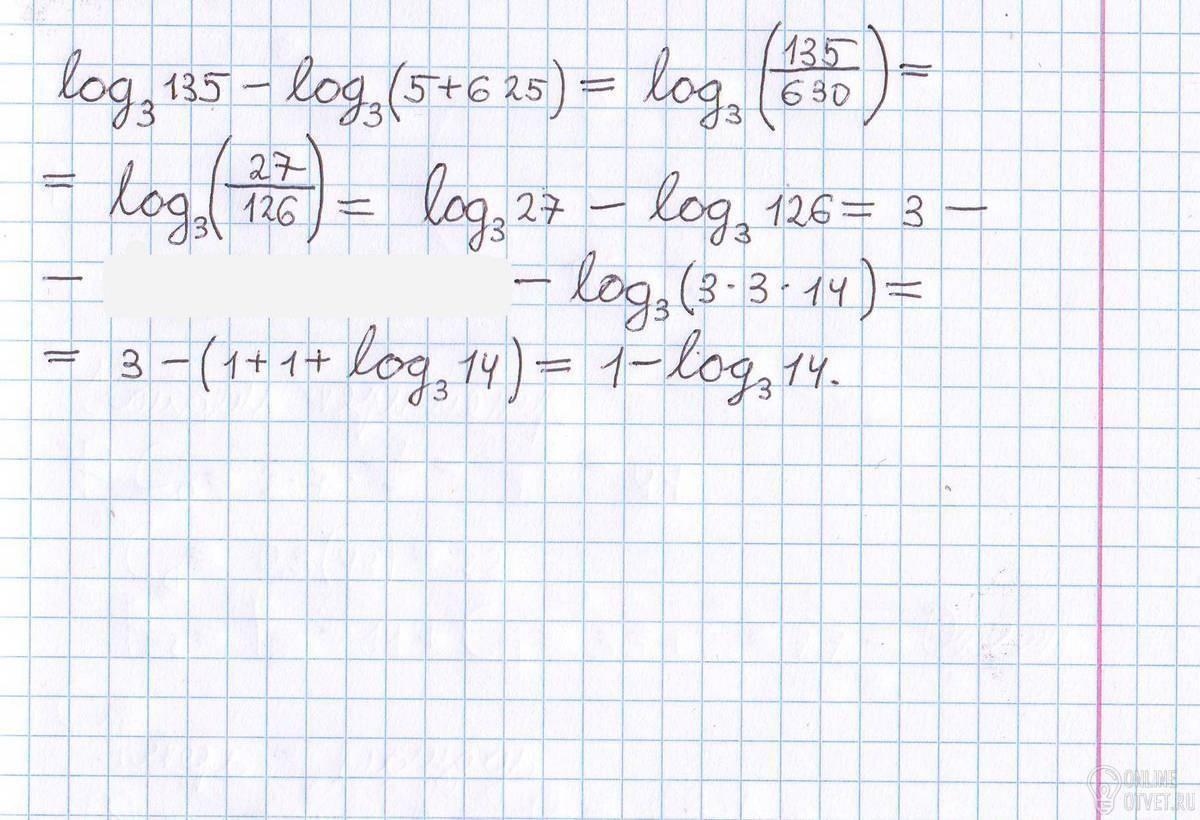 log₃135 − log₃(5+625) = log₃(135/630) =
= log₃(27/126) = log₃27 − log₃126 = 3 −
− − log₃(3·3·14) =
= 3 − (1+1+ log₃14) = 1 − log₃14.
ONLINE
OTVET.RU